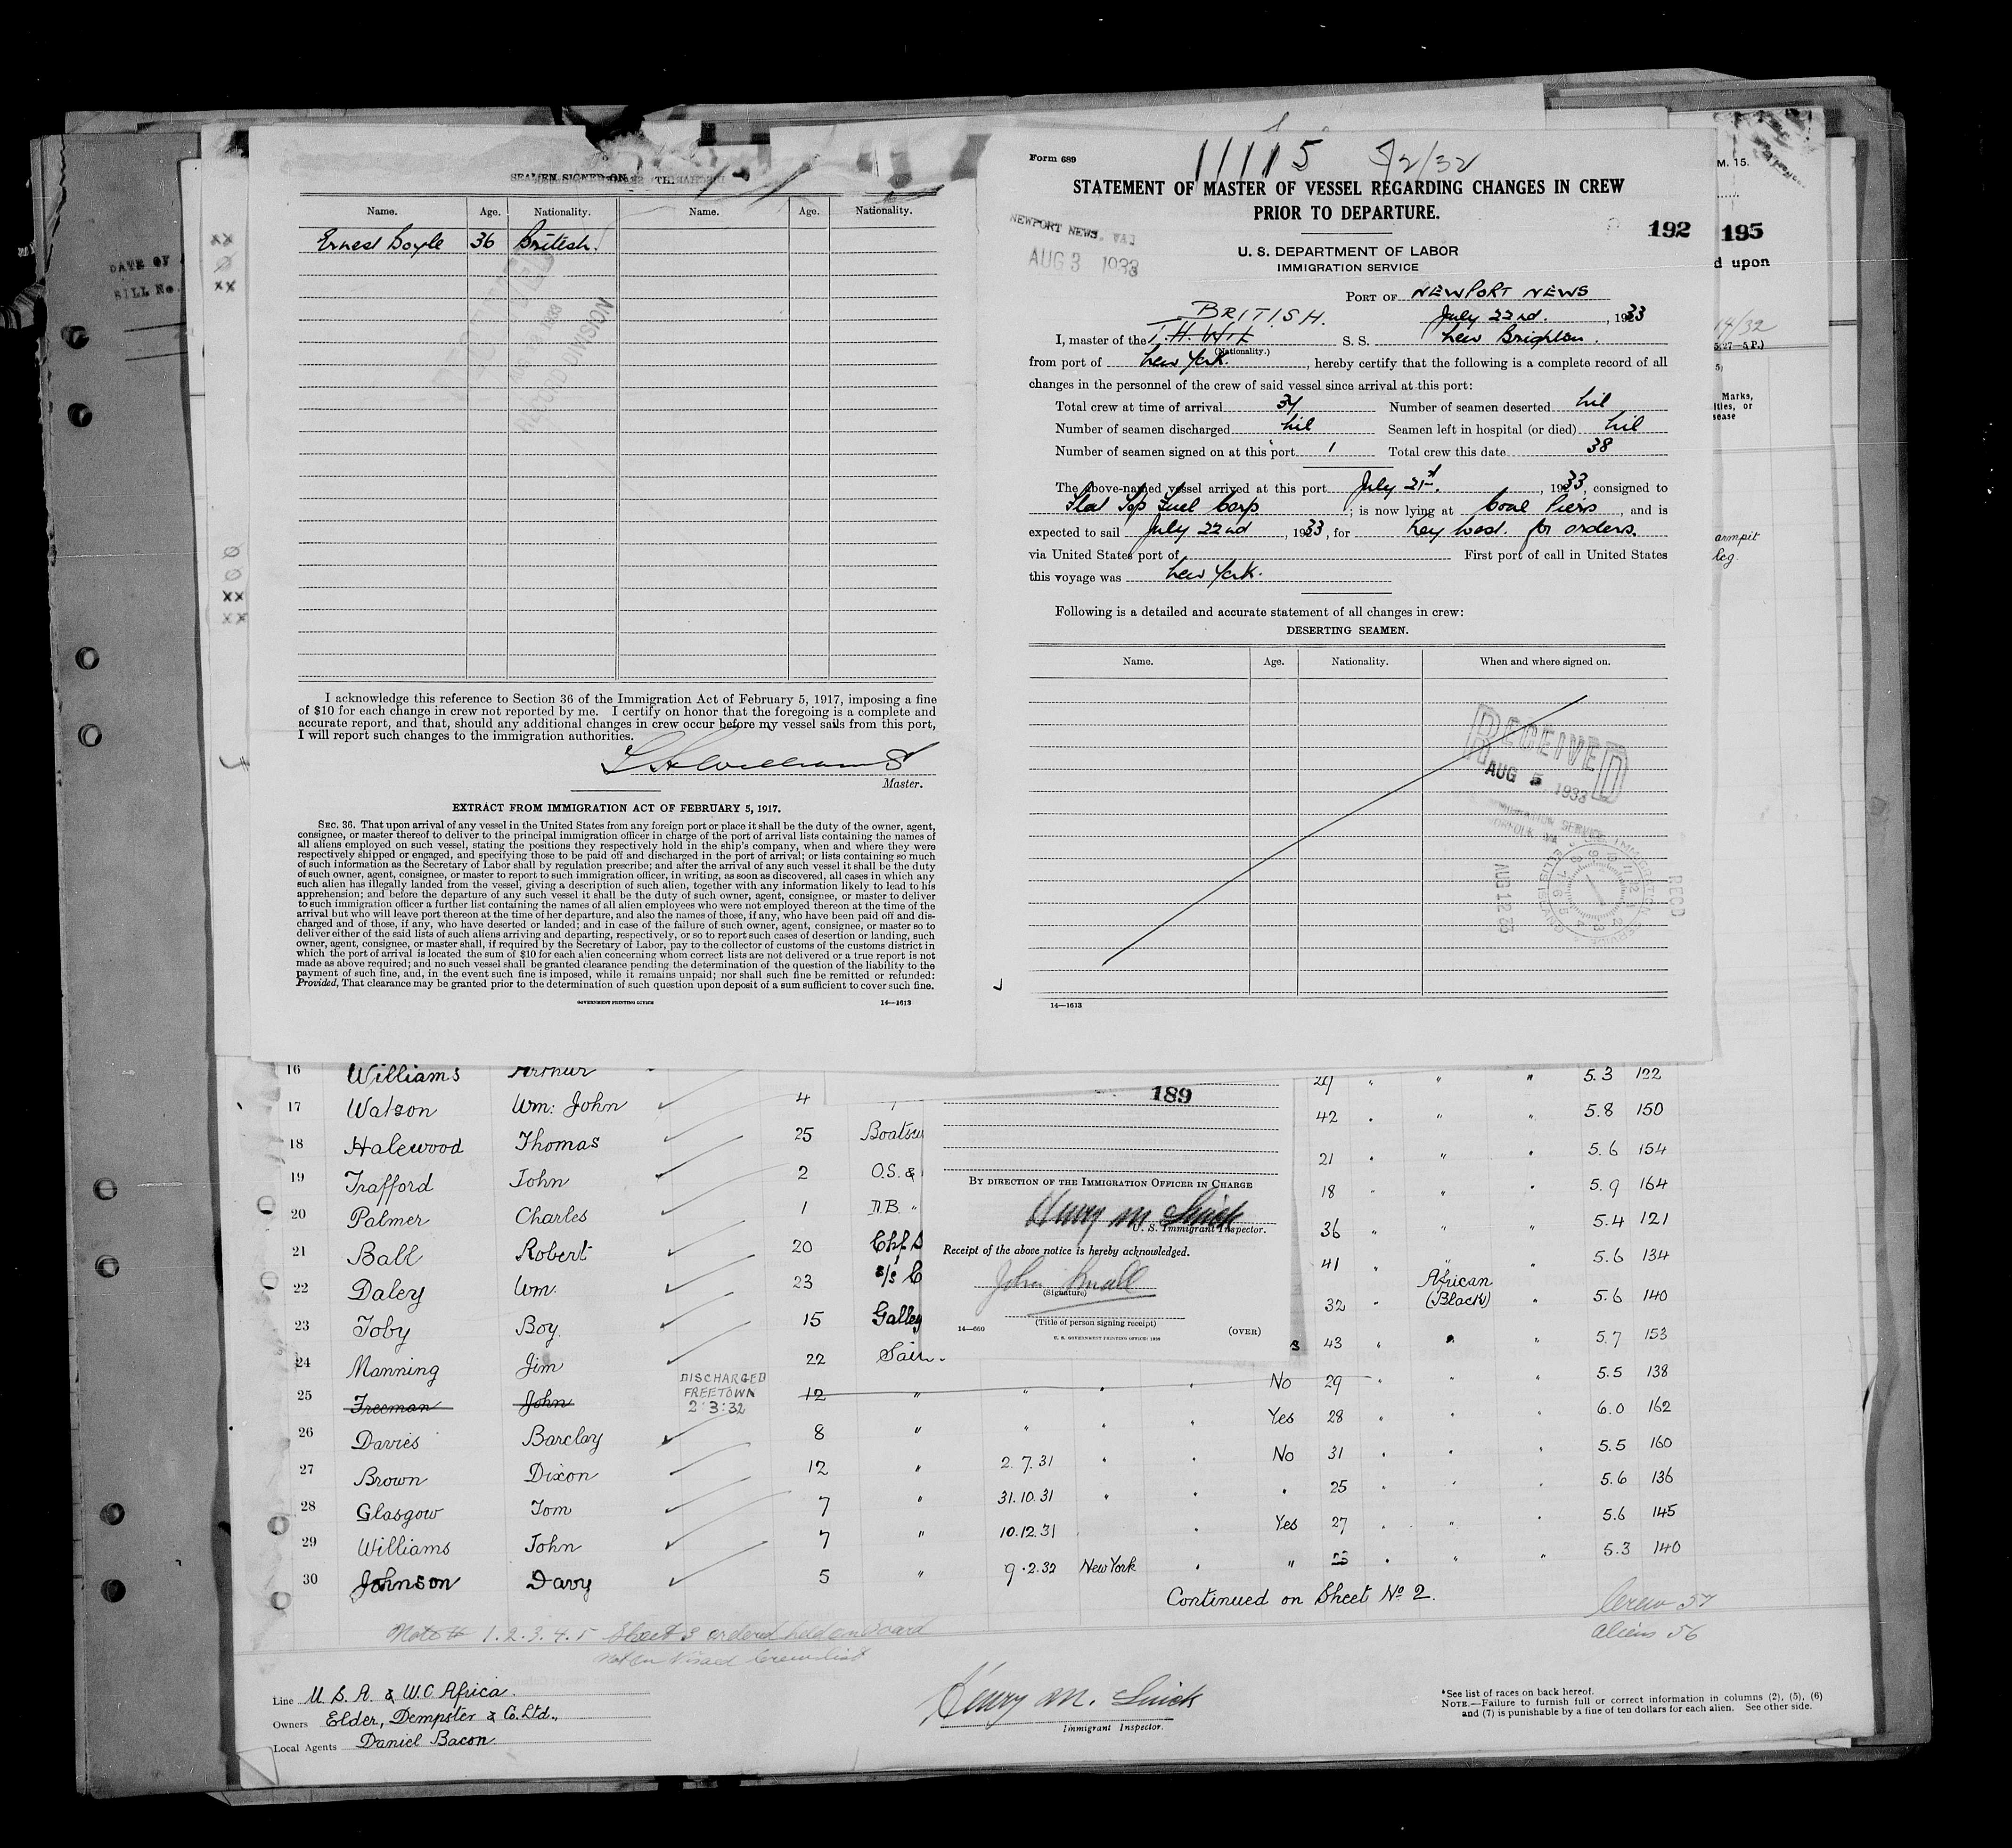 SEAMEN SIGNED ON
Name. Age. Nationality. Name. Age. Nationality.
Ernest Boyle 36 British.
RECEIVED
1933
RECORD DIVISION
I acknowledge this reference to Section 36 of the Immigration Act of February 5, 1917, imposing a fine
of $10 for each change in crew not reported by me. I certify on honor that the foregoing is a complete and
accurate report, and that, should any additional changes in crew occur before my vessel sails from this port,
I will report such changes to the immigration authorities.
Williams
Master.
EXTRACT FROM IMMIGRATION ACT OF FEBRUARY 5, 1917.
SEC. 36. That upon arrival of any vessel in the United States from any foreign port or place it shall be the duty of the owner, agent,
consignee, or master thereof to deliver to the principal immigration officer in charge of the port of arrival lists containing the names of
all aliens employed on such vessel, stating the positions they respectively hold in the ship's company, when and where they were
respectively shipped or engaged, and specifying those to be paid off and discharged in the port of arrival; or lists containing so much
of such information as the Secretary of Labor shall by regulation prescribe; and after the arrival of any such vessel it shall be the duty
of such owner, agent, consignee, or master to report to such immigration officer, in writing, as soon as discovered, all cases in which any
such alien has illegally landed from the vessel, giving a description of such alien, together with any information likely to lead to his
apprehension; and before the departure of any such vessel it shall be the duty of such owner, agent, consignee, or master to deliver
to such immigration officer a further list containing the names of all alien employees who were not employed thereon at the time of the
arrival but who will leave port thereon at the time of her departure, and also the names of those, if any, who have been paid off and dis-
charged and of those, if any, who have deserted or landed; and in case of the failure of such owner, agent, consignee, or master so to
deliver either of the said lists of such aliens arriving and departing, respectively, or so to report such cases of desertion or landing, such
owner, agent, consignee, or master shall, if required by the Secretary of Labor, pay to the collector of customs of the customs district in
which the port of arrival is located the sum of $10 for each alien concerning whom correct lists are not delivered or a true report is not
made as above required; and no such vessel shall be granted clearance pending the determination of the question of the liability to the
payment of such fine, and, in the event such fine is imposed, while it remains unpaid; nor shall such fine be remitted or refunded:
Provided, That clearance may be granted prior to the determination of such question upon deposit of a sum sufficient to cover such fine.
GOVERNMENT PRINTING OFFICE 14—1613
DATE OF
BILL No.
Form 689
11115 5/2/32
STATEMENT OF MASTER OF VESSEL REGARDING CHANGES IN CREW
PRIOR TO DEPARTURE.
NEWPORT NEWS, VA
AUG 3 1933
192
195
M. 15.
d upon
14/32
U. S. DEPARTMENT OF LABOR
IMMIGRATION SERVICE
PORT OF NEWPORT NEWS
BRITISH. July 22nd. , 1933
I, master of the S. S. New Brighton.
(Nationality.)
from port of New York. , hereby certify that the following is a complete record of all
changes in the personnel of the crew of said vessel since arrival at this port:
Total crew at time of arrival 37 Number of seamen deserted nil
Number of seamen discharged nil Seamen left in hospital (or died) nil
Number of seamen signed on at this port 1 Total crew this date 38
The above-named vessel arrived at this port July 21st. , 1933, consigned to
Flat Top Fuel Corp ; is now lying at Coal Piers , and is
expected to sail July 22nd , 1933, for Key West. for orders.
via United States port of First port of call in United States
this voyage was New York.
Following is a detailed and accurate statement of all changes in crew:
DESERTING SEAMEN.
Name. Age. Nationality. When and where signed on.
RECEIVED
AUG 5 1933
IMMIGRATION SERVICE
NORFOLK VA
AUG 12 33
REC'D
14—1613
Marks,
armpit
leg.
16 Williams Arthur 5.3 122
17 Watson Wm: John 4 42 5.8 150
18 Halewood Thomas 25 Boatsw 21 5.6 154
19 Trafford John 2 O.S. & 18 5.9 164
20 Palmer Charles 1 36 5.4 121
21 Ball Robert 20 41 5.6 134
22 Daley Wm. 23 32 African (Black) 5.6 140
23 Toby Boy 15 Galley 43 5.7 153
24 Manning Jim 22 No 29 5.5 138
DISCHARGED
FREETOWN
2:3:32
25 Freeman John 12 " " Yes 28 6.0 162
26 Davies Barclay 8 " " No 31 5.5 160
27 Brown Dixon 12 " 2.7.31 25 5.6 136
28 Glasgow Tom 7 " 31.10.31 Yes 27 5.6 145
29 Williams John 7 " 10.12.31 " 23 5.3 140
30 Johnson Davy 5 " 9.2.32 New York
189
BY DIRECTION OF THE IMMIGRATION OFFICER IN CHARGE
Henry M
U. S. Immigrant Inspector.
Receipt of the above notice is hereby acknowledged.
John
(Signature)
(Title of person signing receipt)
14—660 (OVER)
Continued on Sheet No 2.
Crew 57
Aliens 56
Note # 1.2.3.4.5 Sheet 3 ordered held on board
not on Visaed Crew list
Line U.S.A. & W.C. Africa.
Owners Elder, Dempster & Co. Ltd.,
Local Agents Daniel Bacon.
Henry M.
Immigrant Inspector.
*See list of races on back hereof.
NOTE.—Failure to furnish full or correct information in columns (2), (5), (6)
and (7) is punishable by a fine of ten dollars for each alien. See other side.